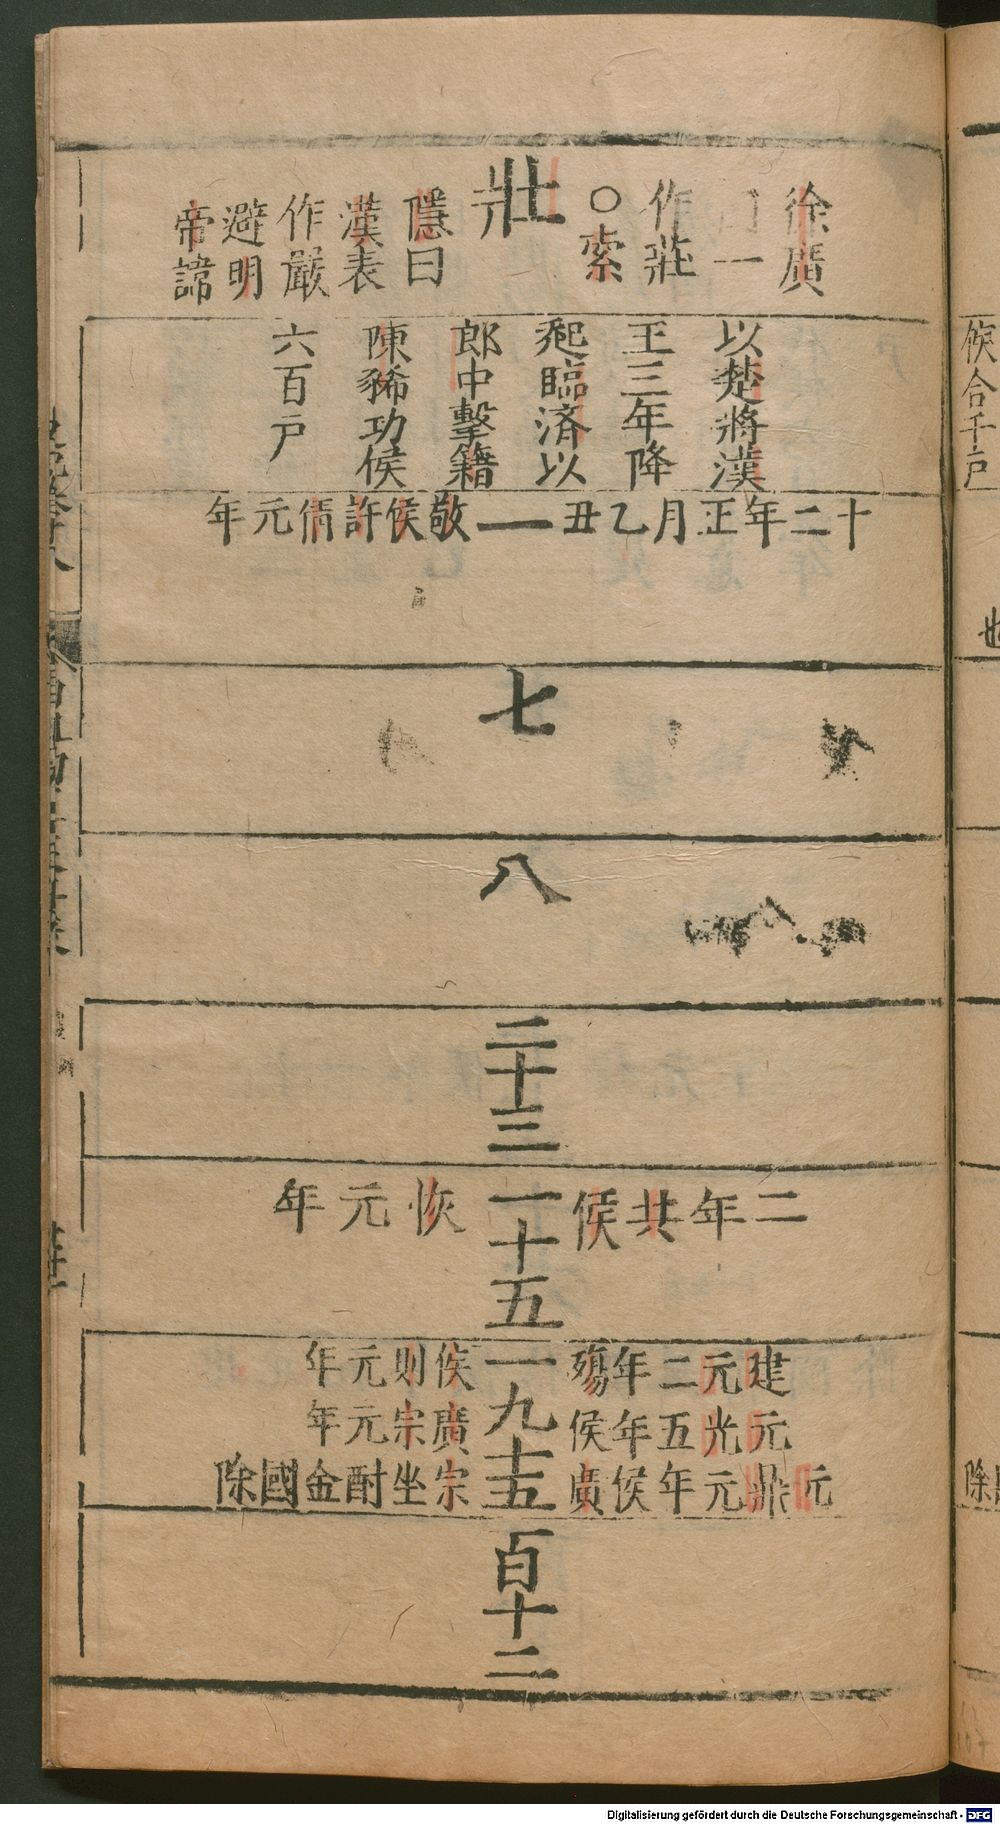 侯合千戶
徐廣
一
作莊
○索
壯
隱曰
漢表
作嚴
避明
帝諱
以楚將漢
王三年降
起臨濟以
郎中擊籍
陳豨功侯
六百戶
十二年正月乙丑一敬侯許倩元年
七
八
二十三
二年共侯
一十五
恢元年
建元二年殤一侯則元年
元光五年侯九廣宗元年
元鼎元年侯廣十五宗坐酎金國除
百十二
除
Digitalisierung gefördert durch die Deutsche Forschungsgemeinschaft - DFG